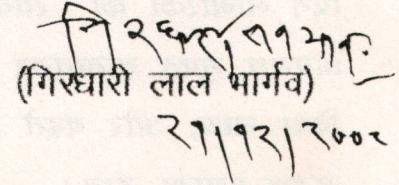 गिरधारी लाल भार्गव
(गिरधारी लाल भार्गव)
२१|१२|२००२